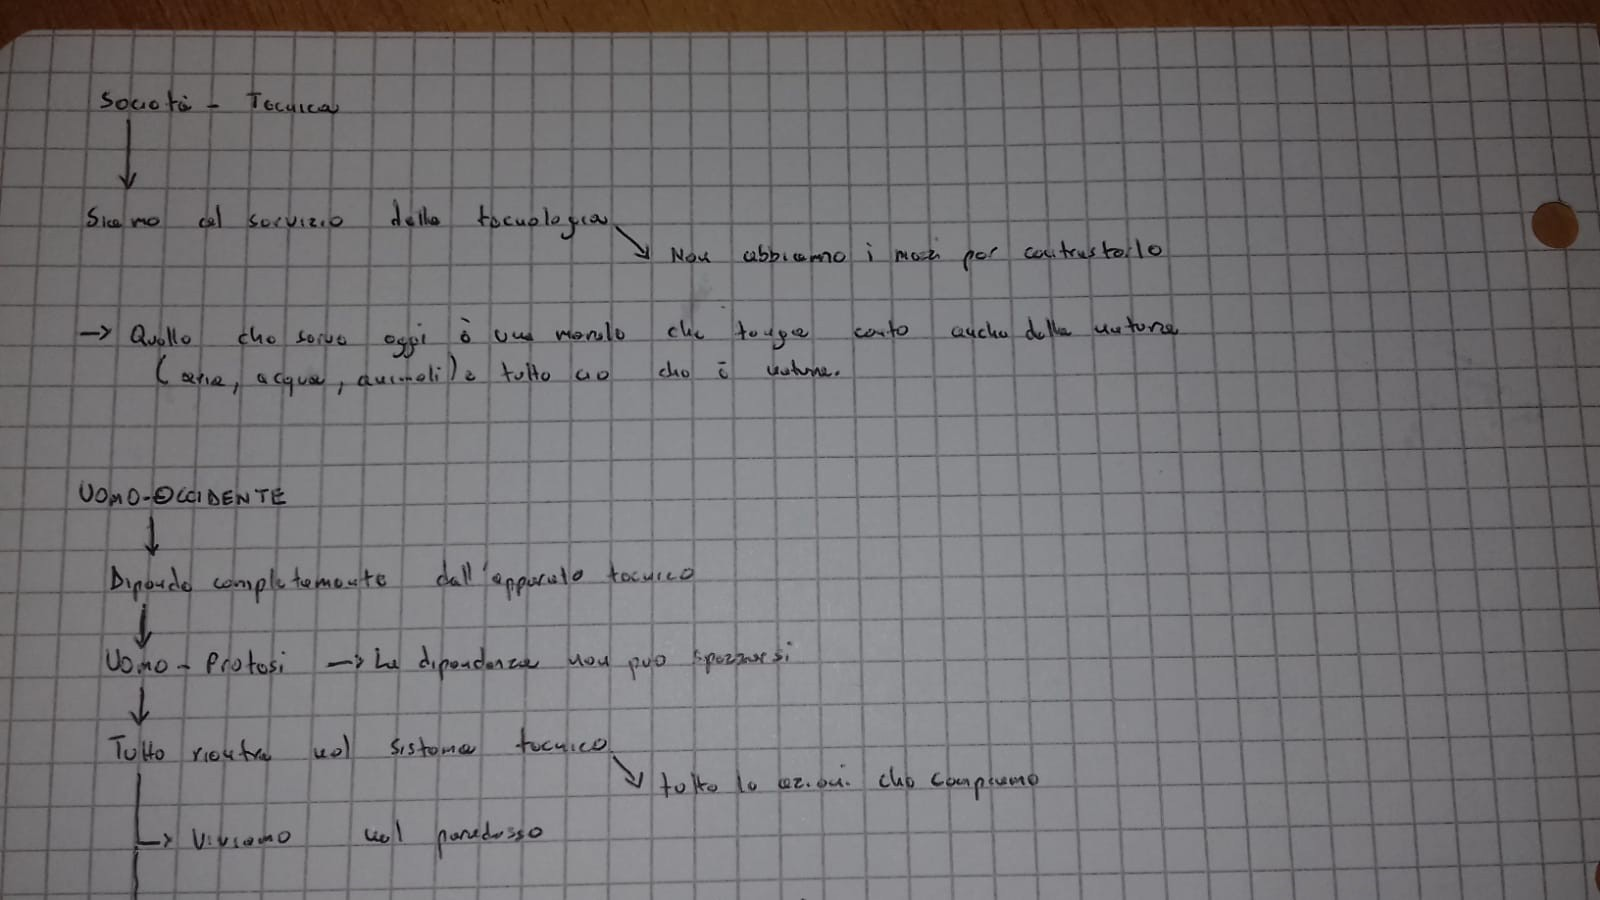 Società - Tecnica
Siamo al servizio della tecnologia
Non abbiamo i mezzi per contrastarlo
→ Quello che serve oggi è una morale che tenga conto anche della natura
(aria, acqua, animali) e tutto ciò che è natura.
UOMO-OCCIDENTE
Dipende completamente dall'apparato tecnico
Uomo - Protesi → La dipendenza non può spezzarsi
Tutto rientra nel sistema tecnico
tutte le azioni che compiamo
→ Viviamo nel paradosso